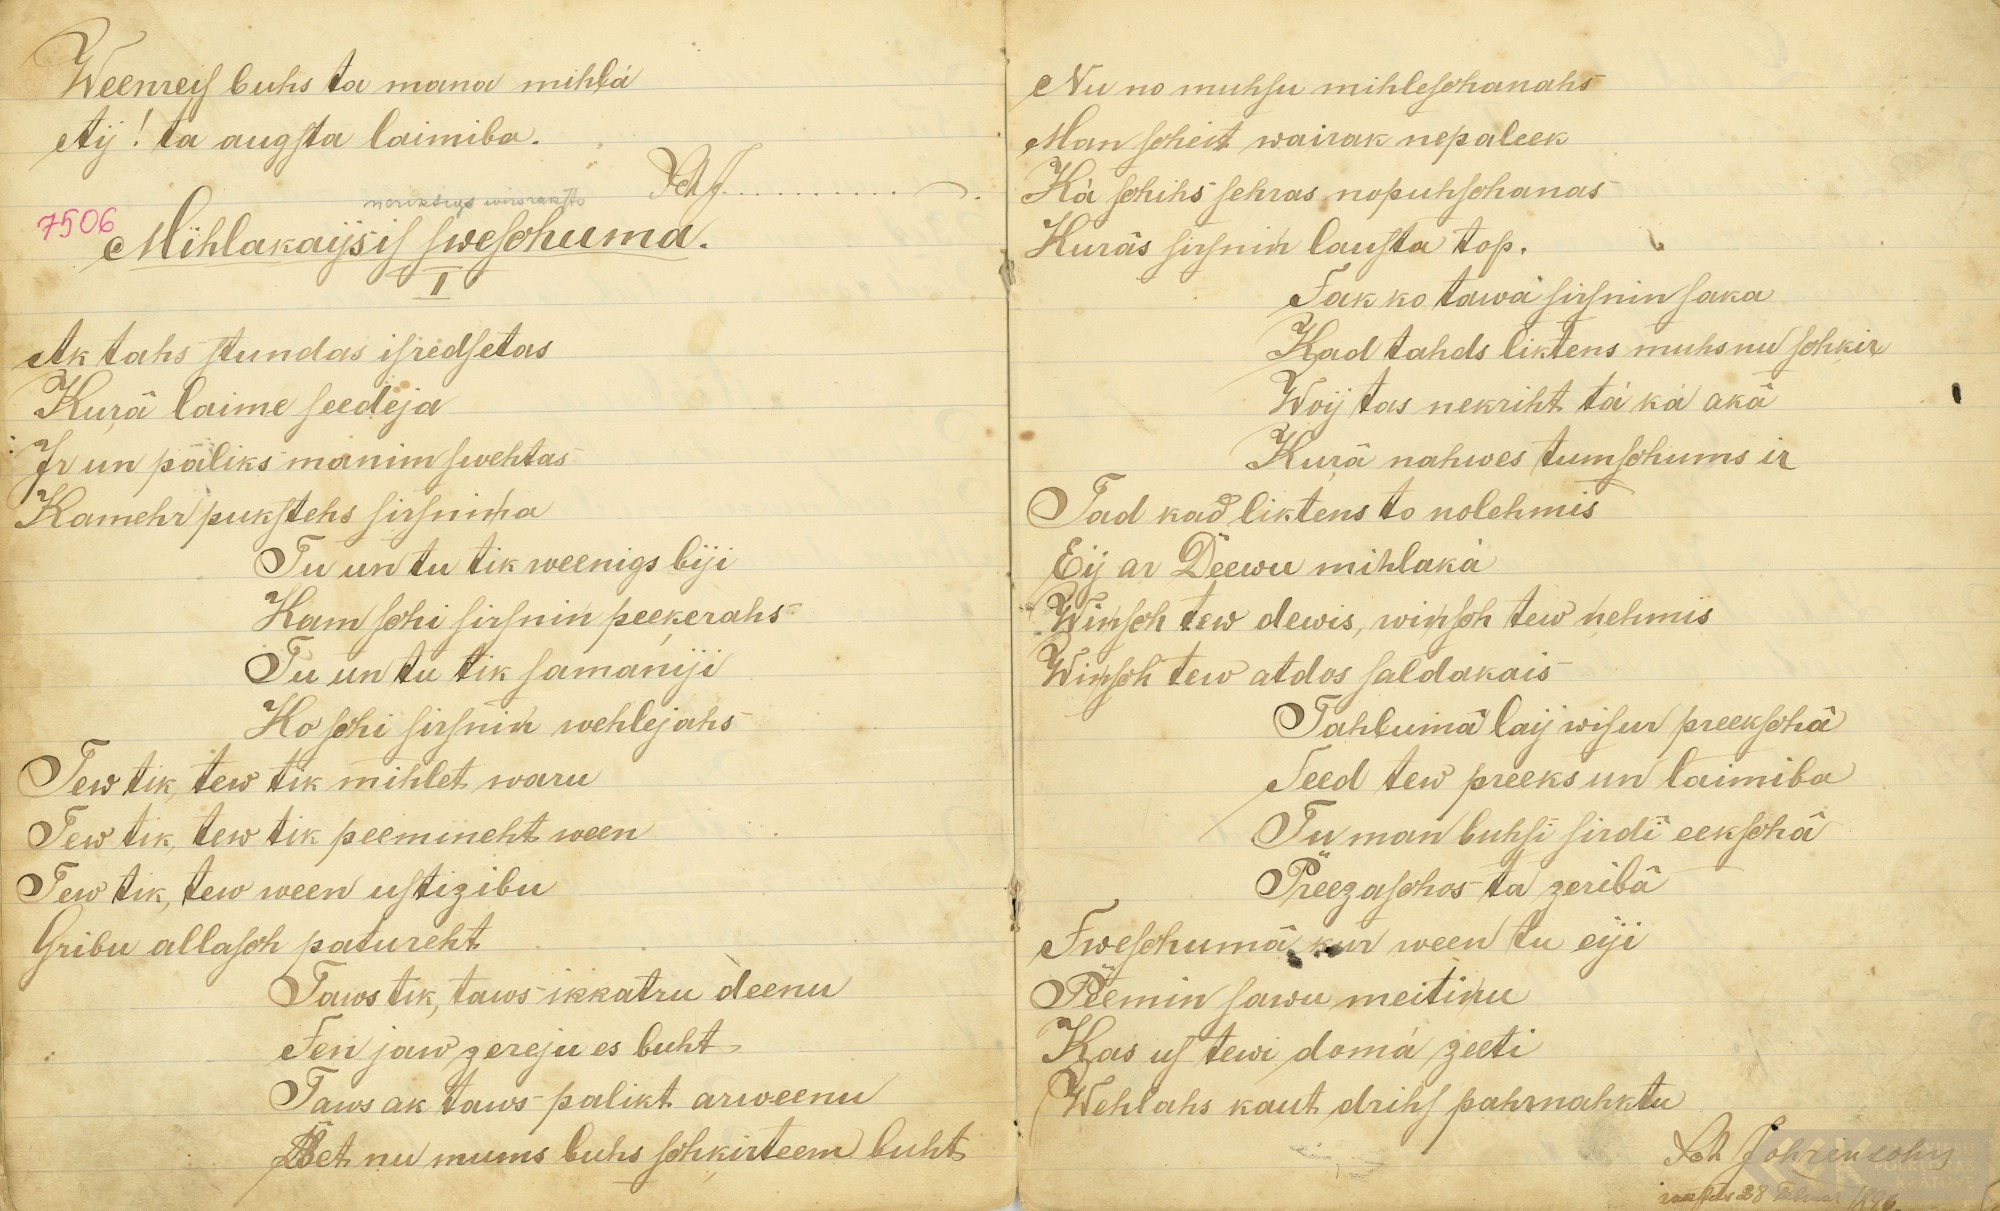 Weenreiſ buhs ta mana mihlá
Aij! ta augſta laimiba.
Sch J...............
7506
Mihlakaijs iſ ſweſchuma.
II
Ak tahs ſtundas iſredſetas
Kuŗâ laime ſeedeja
Ir un paliks manim ſwehtas
Kamehr pukſtehs ſirſniņa
Tu un tu tik weenigs biji
Kam ſchi ſirſniņ peeķerahs
Tu un tu tik ſamaniji
Ko ſchi ſirſniņ wehlejahs
Tew tik, tew tik mihlet waru
Tew tik, tew tik peemineht ween
Tew tik, tew ween uſtizibu
Gribu allaſch patureht
Taws tik, taws ikkatru deenu
Sen jaw zereju es buht
Taws ak taws palikt arweenu
Bet nu mums buhs ſchķirteem buht
Nu no muhſu mihleſchanahs
Man ſcheit wairak nepaleek
Kà ſchihs ſehras nopuhſchanas
Kurâs ſirſniņ lauſta top.
Sak ko tawa ſirſniņ ſaka
Kad tahds liktens muhs nu ſchķiŗ
Woij tas nekriht tá ká akâ
Kuŗâ nahwes tumſchums ir
Tad kad liktens to nolehmis
Eij ar Deewu mihlaká
Wiņſch tew dewis, wiņſch tew ņehmis
Wiņſch tew atdos ſaldakais
Tahlumâ laij wiſur preekſchâ
Seed tew preeks un laimiba
Tu man buhſi ſirdî eekſchâ
Preezaſchos ta zeribâ
Sweſchumâ kur ween tu eiji
Peemin ſawu meitiņu
Kas uſ tewi domá zeeti
Wehlahs kaut drihſ pahrnahktu
Sch Johrensohn
28 Februar 1896